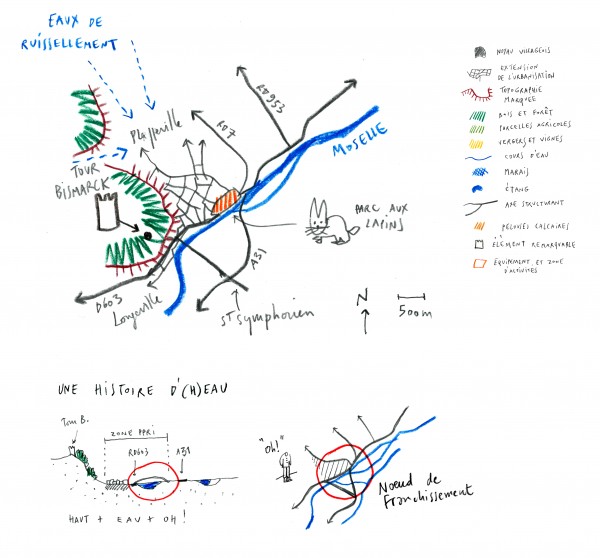 EAUX DE
RUISSELLEMENT
Plappeville
RD7
RD953
MOSELLE
TOUR
BISMARCK
PARC AUX
LAPINS
A31
D603
Longeville
ST Symphorien
N
500m
NOYAU VILLAGEOIS
EXTENSION
DE L'URBANISATION
TOPOGRAPHIE
MARQUÉE
BOIS ET FORÊT
PARCELLES AGRICOLES
VERGERS ET VIGNES
COURS D'EAU
MARAIS
ÉTANG
AXE STRUCTURANT
PELOUSES CALCAIRES
ÉLÉMENT REMARQUABLE
ÉQUIPEMENT ET ZONE
D'ACTIVITÉS
UNE HISTOIRE D'(H)EAU
Tour B.
ZONE PPRI
RD603
A31
HAUT + EAU + OH !
"oh!"
Noeud de
Franchissement